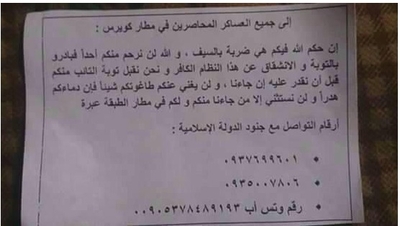 إلى جميع العساكر المحاصرين في مطار كويرس :
إن حكم الله فيكم هي ضربة بالسيف ، و الله لن نرحم منكم أحداً فبادرو
بالتوبة و الانشقاق عن هذا النظام الكافر و نحن نقبل توبة التائب منكم
قبل أن نقدر عليه إن جاءنا ، و لن يغني عنكم طاغوتكم شيئاً فإن دماءكم
هدراً و لن نستثني إلا من جاءنا منكم و لكم في مطار الطبقة عبرة
أرقام التواصل مع جنود الدولة الإسلامية :
• ٠٩٣٧٦٩٩٦٠١
• ٠٩٣٥٠٠٧٨٠٦
• رقم وتس أب ٠٠٩٠٥٣٧٨٤٨٩١٩٣